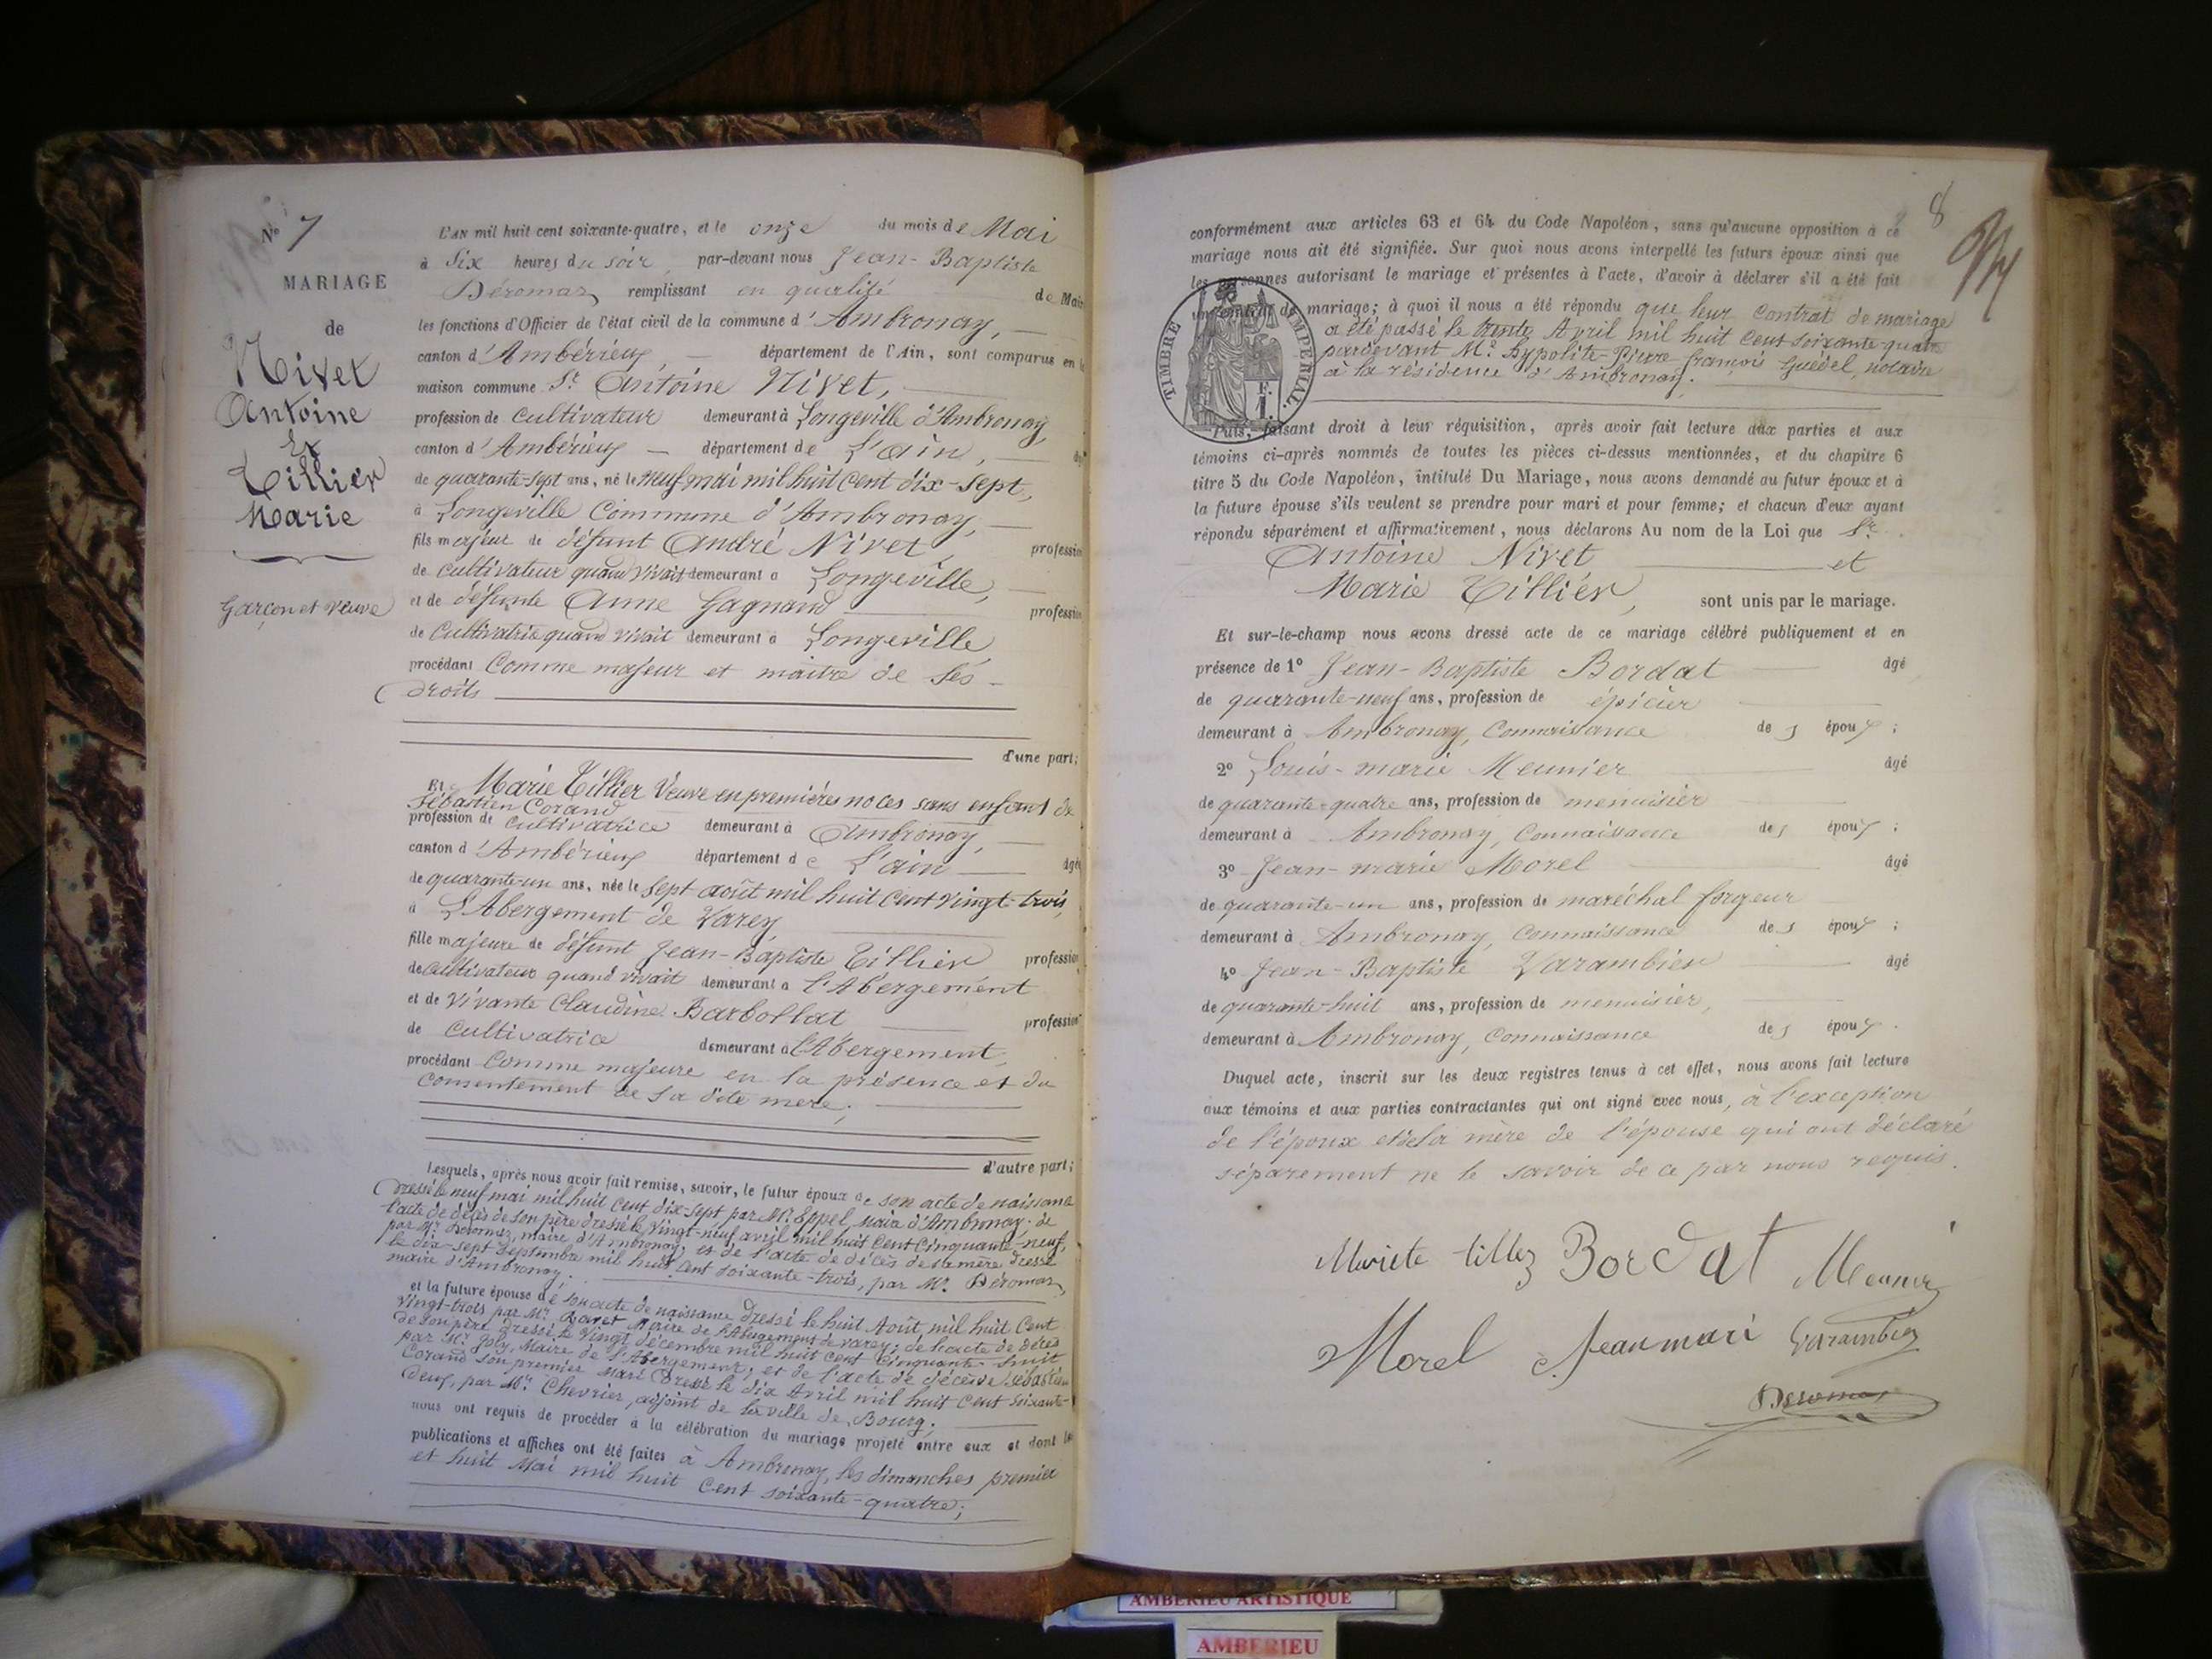 N° 7
MARIAGE
de
Nivet
Antoine
Et
Tillier
Marie
Garçon et Veuve
L'AN mil huit cent soixante-quatre, et le onze du mois de Mai
à Six heures du soir, par-devant nous Jean-Baptiste
Déromas, remplissant en qualité de Maire
les fonctions d'Officier de l'état civil de la commune d'Ambronay,
canton d'Ambérieux, département de l'Ain, sont comparus en la
maison commune Sr Antoine Nivet,
profession de Cultivateur demeurant à Longeville d'Ambronay,
canton d'Ambérieux département de L'ain, âgé
de quarante-sept ans, né le neuf mai mil huit cent dix-sept,
à Longeville Commune d'Ambronay,
fils majeur de défunt André Nivet, profession
de cultivateur quand vivait demeurant à Longeville,
et de défunte Anne Gagnand profession
de Cultivatrice quand vivait demeurant à Longeville
procédant Comme majeur et maître de ses
droits
d'une part;
Et Marie Tillier Veuve en premières noces sans enfant de
Sébastien Corand
profession de cultivatrice demeurant à Ambronay,
canton d'Ambérieux département de L'ain âgée
de quarante-un ans, née le sept août mil huit cent vingt-trois,
à L'Abergement de Varey
fille majeure de défunt Jean-Baptiste Tillier profession
de Cultivateur quand vivait demeurant à l'Abergement
et de Vivante Claudine Barbollat profession
de Cultivatrice demeurant à L'Abergement,
procédant Comme majeure en la présence et du
Consentement de sa dite mère;
d'autre part;
Lesquels, après nous avoir fait remise, savoir, le futur époux de son acte de naissance
dressé le neuf mai mil huit cent dix-sept par Mr. Eppel, maire d'Ambronay. de
l'acte de décès de son père dressé le vingt-neuf avril mil huit cent cinquante-neuf,
par Mr. Déromas, maire d'Ambronay; et de l'acte de décès de sa mère dressé
le dix-sept septembre mil huit cent soixante-trois, par Mr. Déromas,
maire d'Ambronay;
et la future épouse de son acte de naissance dressé le huit Août mil huit Cent
Vingt-trois par Mr. Maire de l'Abergement de varey; de l'acte de décès
de son père dressé le Vingt décembre mil huit cent Cinquante-huit
par Mr. Joly, Maire de l'Abergement; et de l'acte de décès de Sébastien
Corand son premier mari dressé le dix Avril mil huit Cent soixante-
deux, par Mr. Chevrier, adjoint de la ville de Bourg;
nous ont requis de procéder à la célébration du mariage projeté entre eux et dont les
publications et affiches ont été faites à Ambronay, les dimanches premier
et huit Mai mil huit Cent soixante-quatre;
8
conformément aux articles 63 et 64 du Code Napoléon, sans qu'aucune opposition à ce
mariage nous ait été signifiée. Sur quoi nous avons interpellé les futurs époux ainsi que
les personnes autorisant le mariage et présentes à l'acte, d'avoir à déclarer s'il a été fait
un contrat de mariage; à quoi il nous a été répondu que leur Contrat de mariage
a été passé le trente Avril mil huit Cent soixante-quatre
pardevant Mr. hypolite-Pierre-françois Guédel, notaire
à la résidence d'Ambronay.
TIMBRE IMPERIAL.
F.
1.
Puis, faisant droit à leur réquisition, après avoir fait lecture aux parties et aux
témoins ci-après nommés de toutes les pièces ci-dessus mentionnées, et du chapitre 6
titre 5 du Code Napoléon, intitulé Du Mariage, nous avons demandé au futur époux et à
la future épouse s'ils veulent se prendre pour mari et pour femme; et chacun d'eux ayant
répondu séparément et affirmativement, nous déclarons Au nom de la Loi que Sr.
Antoine Nivet et
Marie Tillier, sont unis par le mariage.
Et sur-le-champ nous avons dressé acte de ce mariage célébré publiquement et en
présence de 1° Jean-Baptiste Bordat âgé
de quarante-neuf ans, profession de épicier
demeurant à Ambronay, Connaissance des époux;
2° Louis-marie Meunier âgé
de quarante-quatre ans, profession de menuisier
demeurant à Ambronay, Connaissance des époux;
3° Jean-marie Morel âgé
de quarante-un ans, profession de maréchal forgeur
demeurant à Ambronay, Connaissance des époux;
4° Jean-Baptiste Varambier âgé
de quarante-huit ans, profession de menuisier,
demeurant à Ambronay, Connaissance des époux.
Duquel acte, inscrit sur les deux registres tenus à cet effet, nous avons fait lecture
aux témoins et aux parties contractantes qui ont signé avec nous, à l'exception
de l'époux et de la mère de l'épouse qui ont déclaré
séparément ne le savoir de ce par nous requis.
Mariete tillez Bordat Meunier
Morel Jean mari Varambier
Déromas
AMBERIEU ARTISTIQUE
AMBERIEU